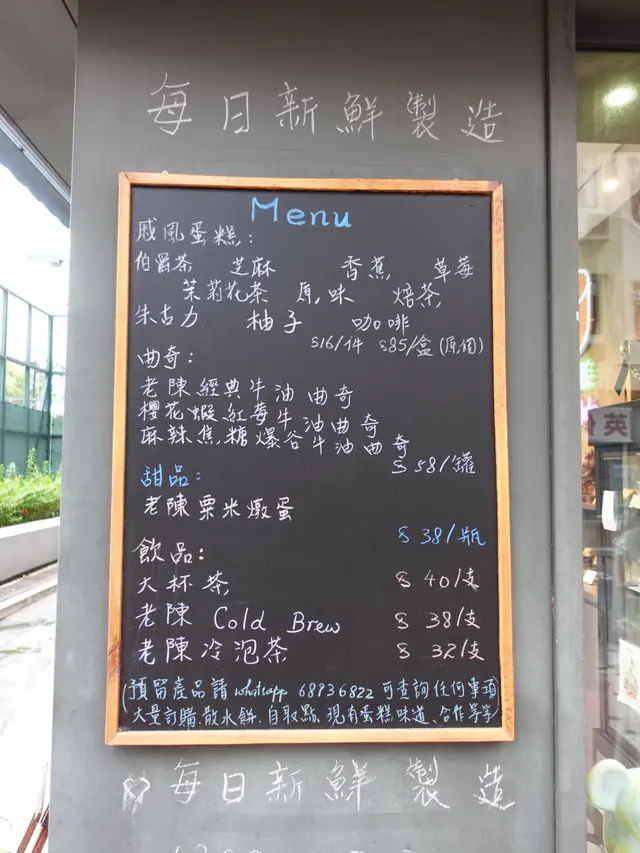 每日新鮮製造
Menu
戚風蛋糕:
伯爵茶 芝麻 香蕉 草莓
茉莉花茶 原味 焙茶
朱古力 柚子 咖啡
$16/件 $85/盒(原個)
曲奇:
老陳經典牛油曲奇
櫻花蝦紅莓牛油曲奇
麻辣焦糖爆谷牛油曲奇
$58/罐
甜品:
老陳粟米燉蛋
$38/瓶
飲品:
大杯茶 $40/支
老陳 Cold Brew $38/支
老陳冷泡茶 $32/支
(預留產品請 whatsapp 68936822 可查詢任何事項
大量訂購、散水餅、自取點、現有蛋糕味道、合作等等)
每日新鮮製造
英